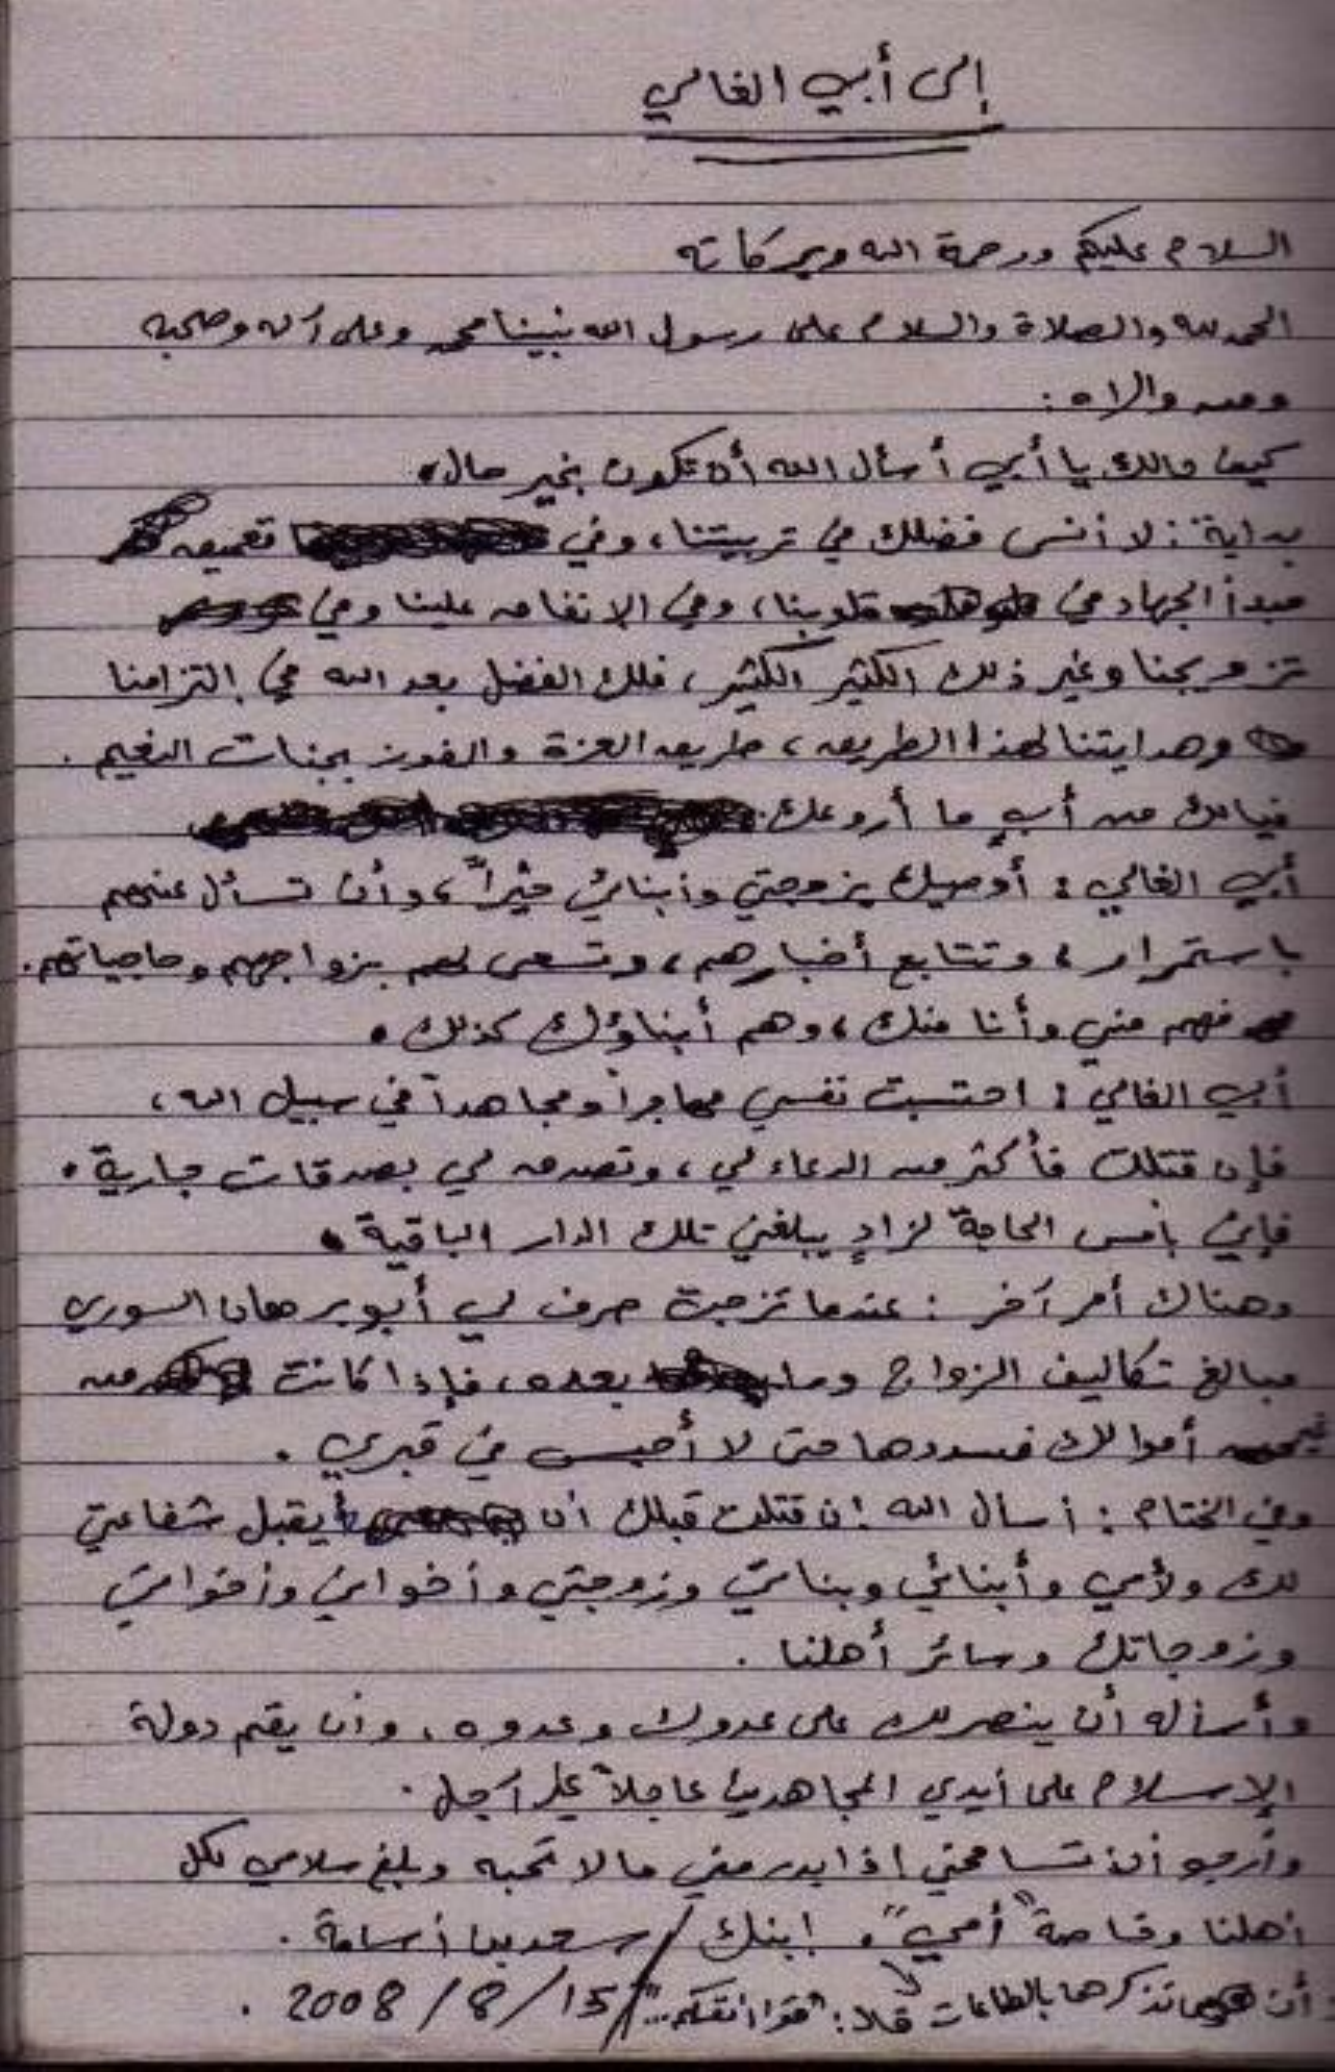 إلى أبي الغالي
السلام عليكم ورحمة الله وبركاته
الحمد لله والصلاة والسلام على رسول الله نبينا محمد وعلى آله وصحبه
ومن والاه :
كيف حالك يا أبي أسأل الله أن تكون بخير حال .
بداية : لا أنسى فضلك في تربيتنا ، وفي تعميق
مبدأ الجهاد في قلوبنا ، وفي الإنفاق علينا وفي
تزويجنا وغير ذلك الكثير الكثير ، فلك الفضل بعد الله في التزامنا
وهدايتنا لهذا الطريق ، طريق العزة والفوز بجنات النعيم .
فيالك من أبٍ ما أروعك .
أبي الغالي : أوصيك بزوجتي وأبنائي خيراً ، وأن تسأل عنهم
باستمرار ، وتتابع أخبارهم ، وتسعى لهم بزواجهم وحاجياتهم .
فهم مني وأنا منك ، وهم أبناؤك كذلك .
أبي الغالي : احتسبت نفسي مهاجراً ومجاهداً في سبيل الله ،
فإن قتلت فأكثر من الدعاء لي ، وتصدق لي بصدقات جارية .
فإني بأمس الحاجة لزادٍ يبلغني تلك الدار الباقية .
وهناك أمر آخر : عندما تزوجت صرف لي أبو برهان السوري
مبالغ تكاليف الزواج وما بعده ، فإذا كانت من
غير أموالك فسددها حتى لا أحبس في قبري .
وفي الختام : أسأل الله إن قتلت قبلك أن يقبل شفاعتي
لك ولأمي وأبنائي وبناتي وزوجتي وأخواني وأخواتي
وزوجاتك وسائر أهلنا .
وأسأله أن ينصرك على عدوك وعدوه ، وأن يقم دولة
الإسلام على أيدي المجاهدين عاجلاً غير آجل .
وأرجو أن تسامحني إذا بدر مني مالا تحبه وبلغ سلامي لكل
أهلنا وخاصة "أمي" . ابنك / سعد بن أسامة .
أن تذكرها بالطاعات : "قوا أنفسكم .." / 15 / 8 / 2008 .